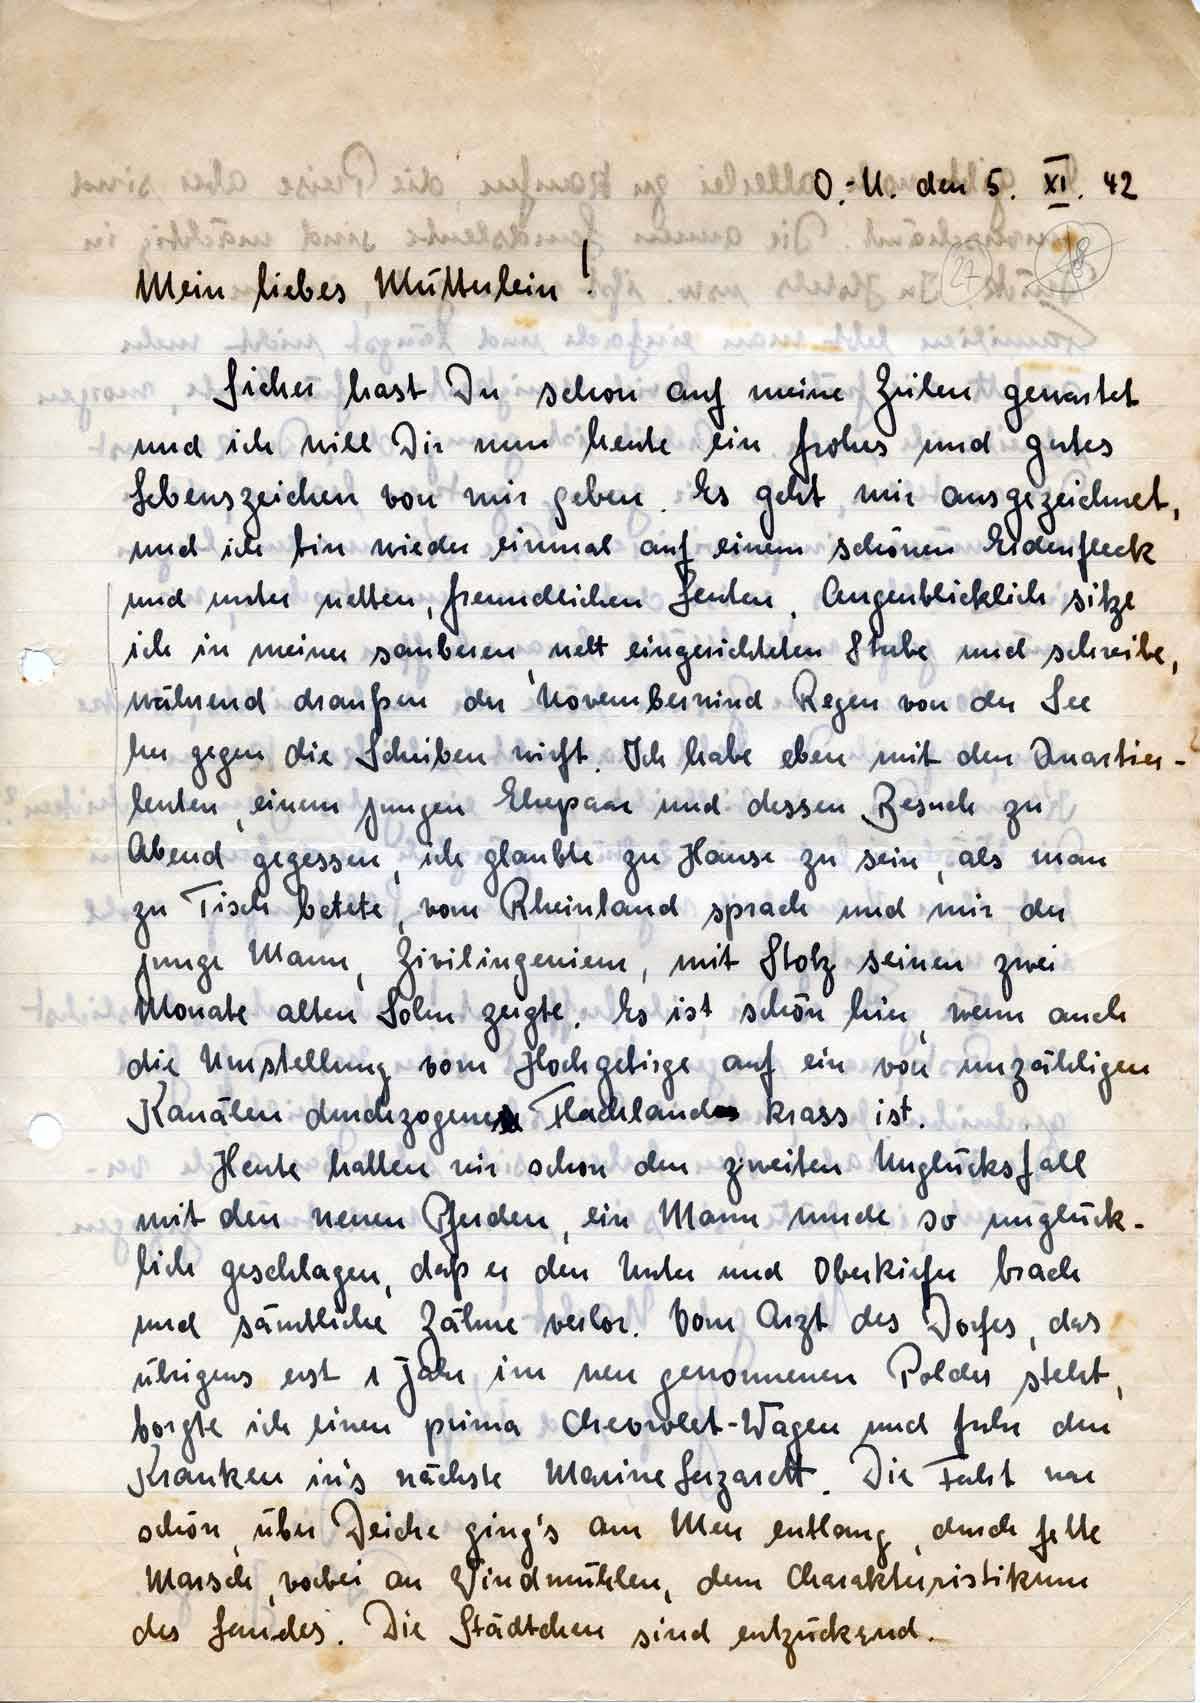 O.-U. den 5. XI. 42
27
Mein liebes Mütterlein!
Sicher hast Du schon auf meine Zeilen gewartet
und ich will Dir nun heute ein frohes und gutes
Lebenszeichen von mir geben. Es geht mir ausgezeichnet,
und ich bin wieder einmal auf einem schönen Erdenfleck
und unter netten, freundlichen Leuten. Augenblicklich sitze
ich in meiner sauberen, nett eingerichteten Stube und schreibe,
während draußen der Novemberwind Regen von der See
her gegen die Scheiben wirft. Ich habe eben mit den Quartier-
leuten, einem jungen Ehepaar und dessen Besuch zu
Abend gegessen, ich glaubte zu Hause zu sein, als man
zu Tisch betete, vom Rheinland sprach und mir der
junge Mann, Zivilingenieur, mit Stolz seinen zwei
Monate alten Sohn zeigte. Es ist schön hier, wenn auch
die Umstellung vom Hochgebirge auf ein von unzähligen
Kanälen durchzogenes Flachland krass ist.
Heute hatten wir schon den zweiten Unglücksfall
mit den neuen Pferden, ein Mann wurde so unglück-
lich geschlagen, daß er den Unter und Oberkiefer brach
und sämtliche Zähne verlor. Vom Arzt des Dorfes, das
übrigens erst 1 Jahr im neu gewonnenen Polder steht,
borgte ich einen prima Chevrolet-Wagen und fuhr den
Kranken in's nächste Marine Lazarett. Die Fahrt war
schön, über Deiche ging's am Meer entlang, durch fette
Marsch, vorbei an Windmühlen, dem Charakteristikum
des Landes. Die Städtchen sind entzückend.